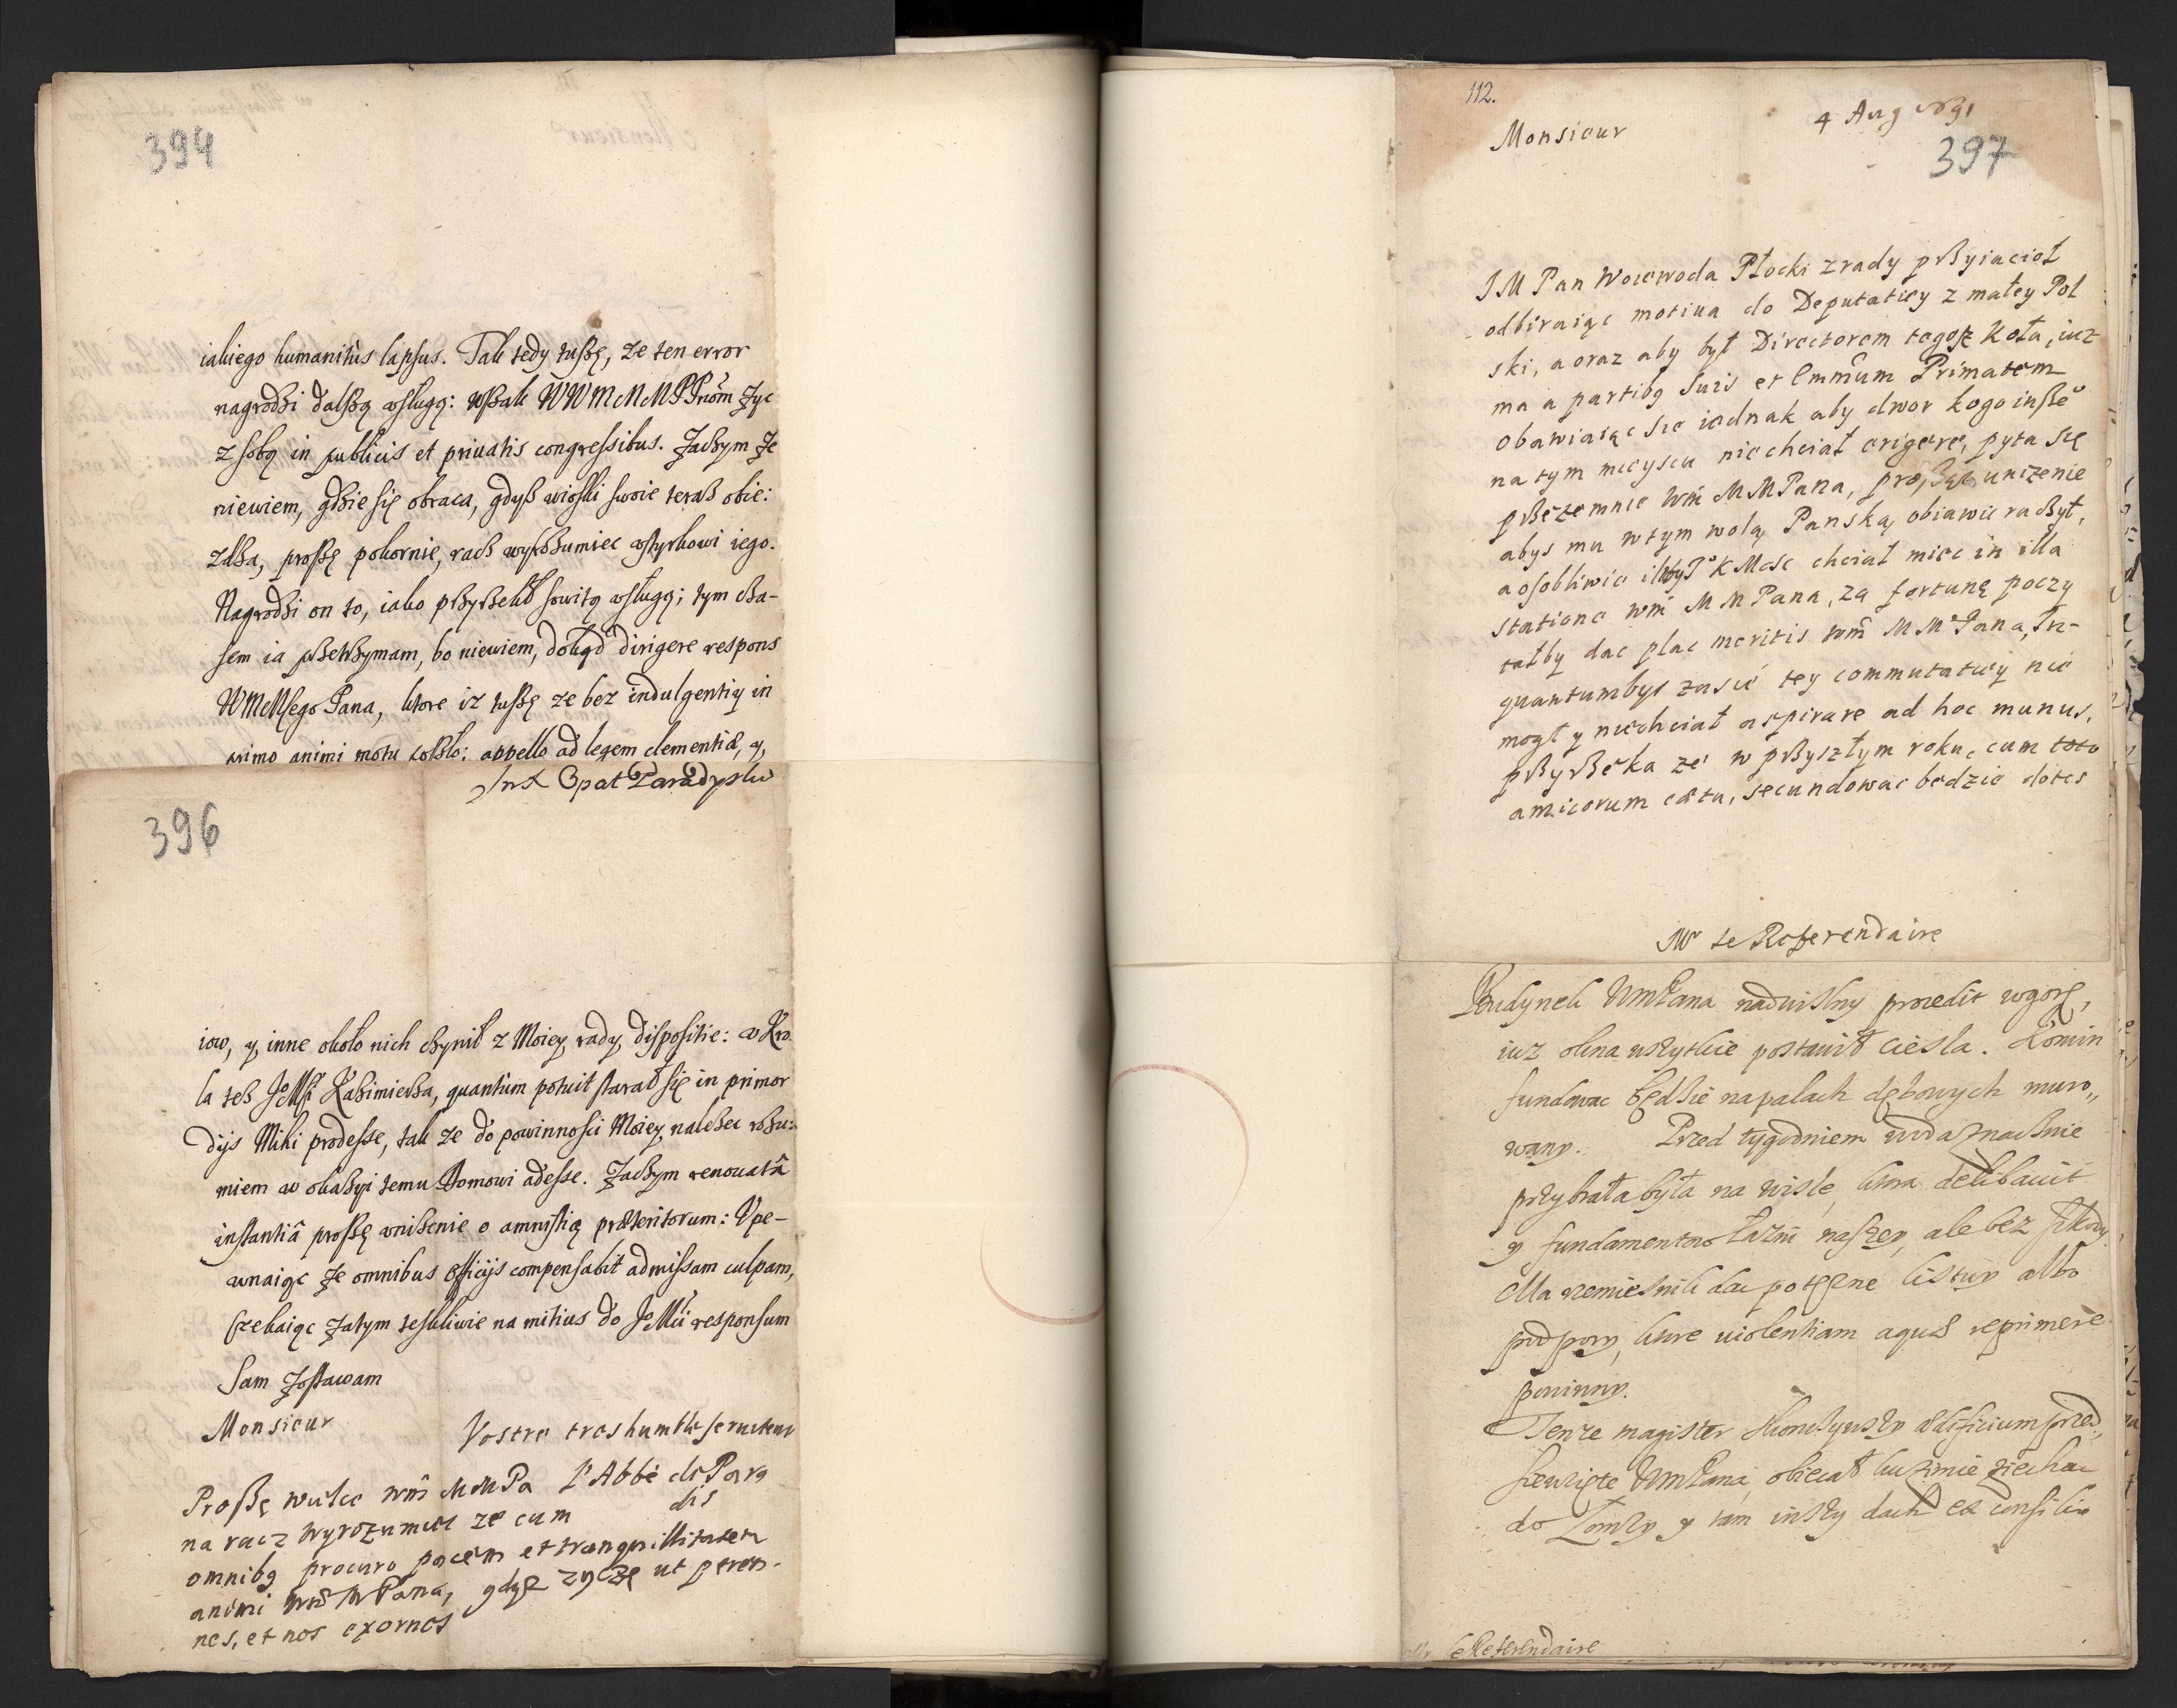 394
iakiego humanitùs lapsus. Tak tedy tußę, ze ten error
nagrodzi dalßą usługą: wßak WWMMMPPnom zyc
z sobą in publicis et priuatis congressibus. Zaczym ze
niewiem, gdzie się obraca, gdyß wioski swoie teraß obie:
zdza, proßę pokornie, racz wyrozumiec
iego.
Nagrodzi on to, iako przyrzekł sowitą usługą; tym cza-
sem ia
bo niewiem, dokąd dirigere respons
WMMsego Pana, ktore iz tußę ze bez indulgentiy in
primo animi motu
appello ad legem clementiæ, y,
Opat Paradyski
396
iow, y, inne około nich czynił z Moiey, rady, dispositie: a Kro
la teß JoMsi Kazimierza, quantùm potuit starał się in primor
dijs Mihi prodesse, tak ze do powinnosci Moiey, nalezec rozu:
miem w okazyi temu Domowi adesse. Zaczym renouatâ
instantiâ proßę unizenie o amnistią præteritorum: Upe-
wnaiąc ze omnibus officijs compensabit admissam culpam,
Czekaiąc zatym teskliwie na mitius do JoMci responsum
Sam zostawam
Monsieur Vostre tres humble seruiteur
L'Abbé de Para
dis
Proßę wielce wm̃ MMPa
na racz wyrozumiec ze cum
omnibq procuro pacem et tranquillitatem
animi wm̃ MPana, gdyz zyczę ut peren-
nes, et nos exornes
112.
4 Aug
397
Monsieur
JM Pan Woiewoda Płocki z rady przyiacioł
odbiraiąc motiua do Deputatiey z małey Pol
ski, a oraz aby był Directorem tegoz Koła, iuz
ma a partibq suis et Emmũm Primatem
obawiaiąc sie iednak aby dwor kogo inße°
na tym mieyscu niechciał erigere, pyta się
przezemnie wm̃ MMPana, proßąc unizenie
abys mu w tym wolą Panską obiawic raczył,
a osobliwie
K Mosc chciał miec in illa
statione wm̃ MMPana, za fortunę poczy
tałby dac plac meritis wm̃ MMPana, In-
quantumbys zasie tey commutatiey nie
mogł y niechciał aspirare ad hoc munus,
przyrzeka ze w przyszłym roku, cum toto
amicorum cætu, secundowac bedzie dotes
Mr le Referendaire
Budynek WmPana nadwislny procedit wgorę,
iuz okna wszytkie postawił ciesla. Komin
fundowac będzie na palach dębowych muro„
wany. Przed tygodniem woda znacznie
przybrała była na wisle, ktora delibauit
y fundamentow łazni naszey, ale bez szkody
Ma rzemiesnik dac potęzne listwy albo
podpory, ktore uiolentiam aquæ reprimere
powinny.
Tenze magister
ædificium przed„
sięwzięte WmPana, obiecał ku zimie ziechac
do Łomzy y tam inszy dach ex consilio
le Referendaire